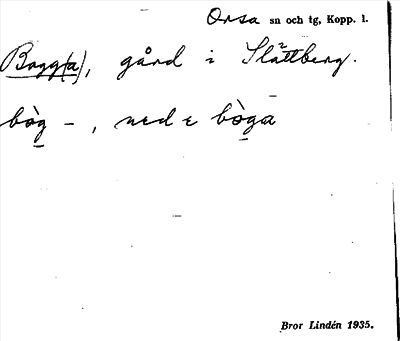 Orsa sn och tg, Kopp. l.
Bogg(a), gård i Slättberg.
bòg –, ned e bòga
Bror Lindén 1935.